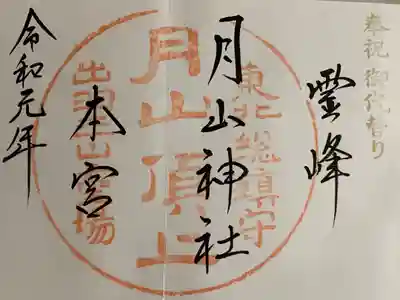 奉祝 御代替り
靈峰
月山神社
本宮
令和元年
東北総鎮守
月山頂上
出羽三山霊場